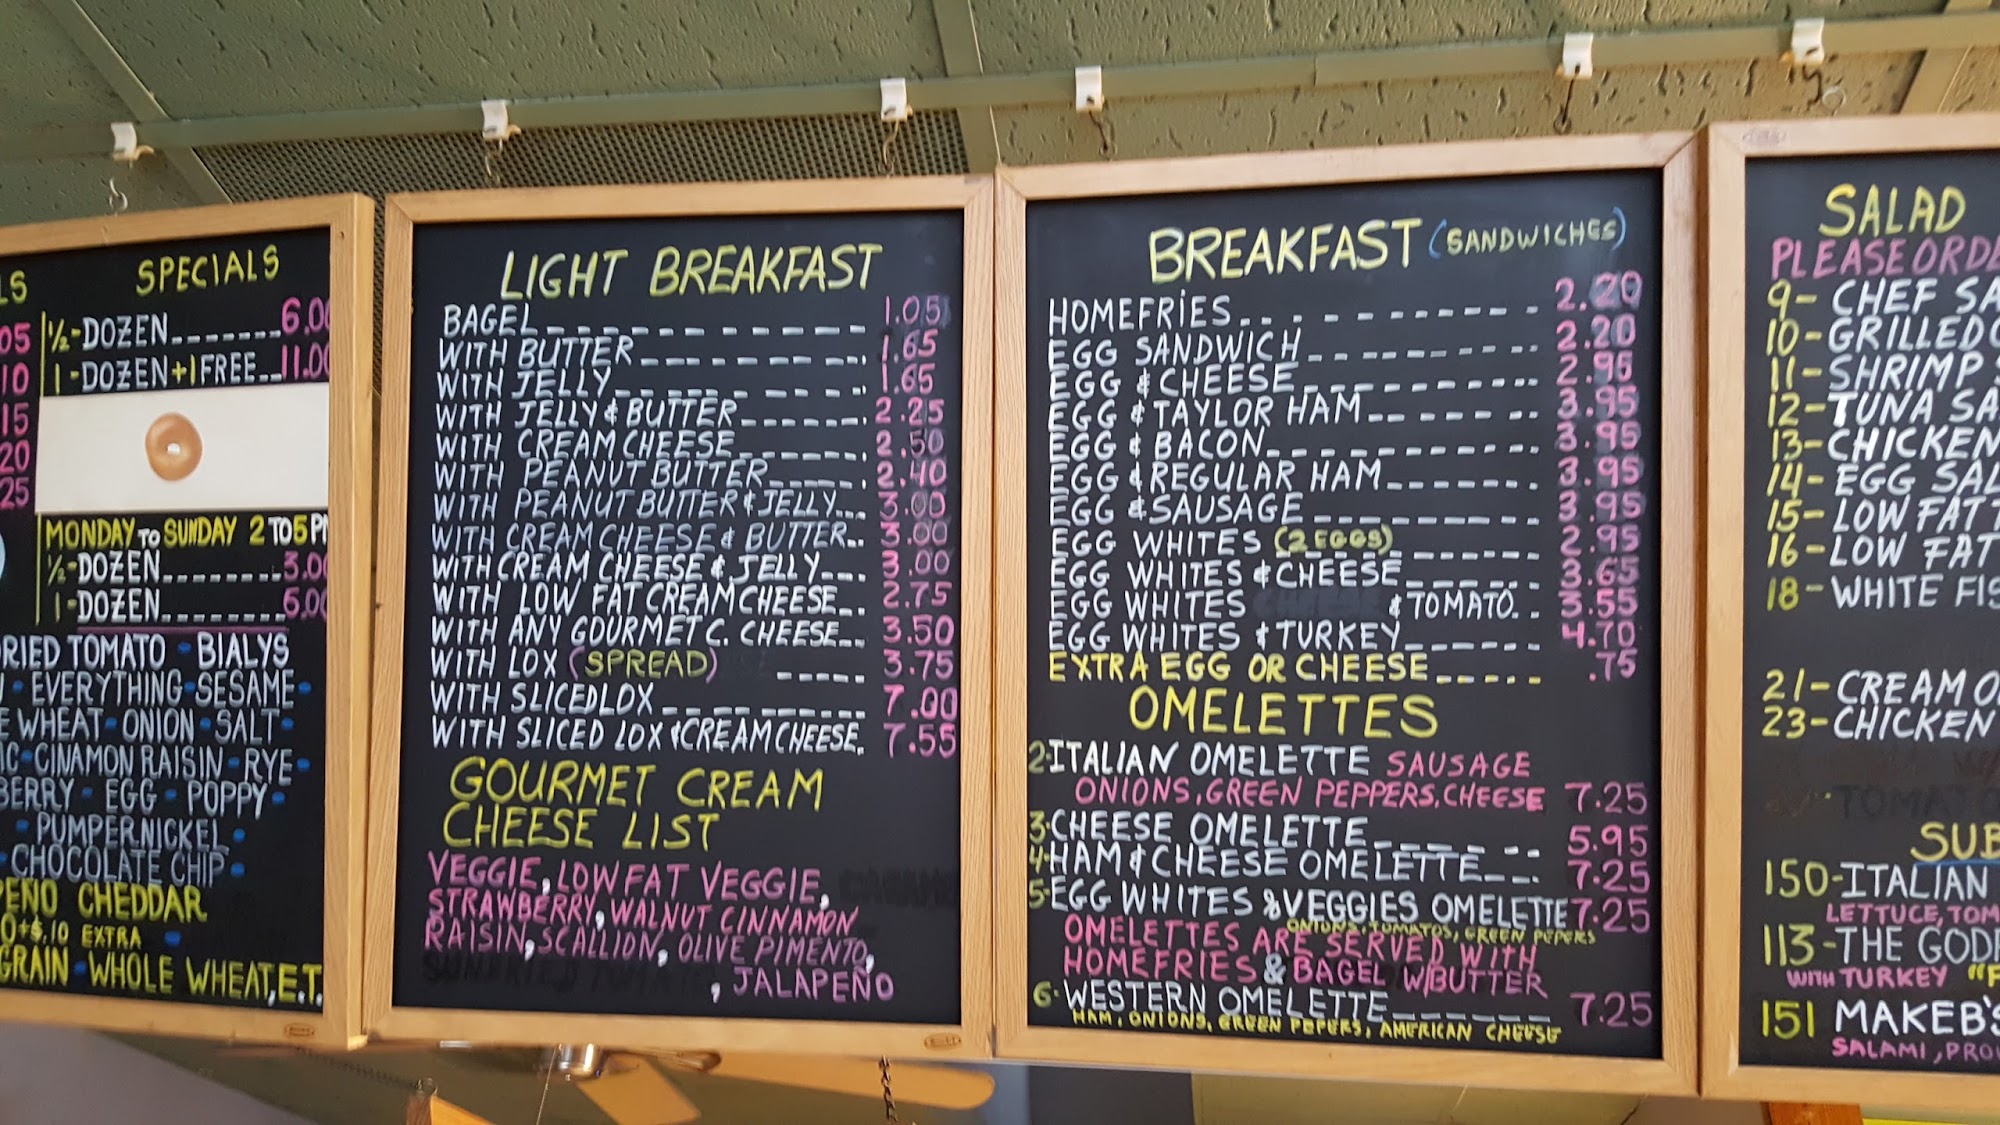 LS
05
10
15
20
25
SPECIALS
½-DOZEN 6.00
1-DOZEN+1 FREE 11.00
MONDAY TO SUNDAY 2 TO 5 PM
½-DOZEN 3.00
1-DOZEN 6.00
DRIED TOMATO - BIALYS
EVERYTHING - SESAME -
WHEAT - ONION - SALT -
IC - CINAMON RAISIN - RYE -
BERRY - EGG - POPPY -
- PUMPERNICKEL -
CHOCOLATE CHIP -
PENO CHEDDAR
0+$.10 EXTRA -
GRAIN - WHOLE WHEAT, E.T.
LIGHT BREAKFAST
BAGEL 1.05
WITH BUTTER 1.65
WITH JELLY 1.65
WITH JELLY & BUTTER 2.25
WITH CREAM CHEESE 2.50
WITH PEANUT BUTTER 2.40
WITH PEANUT BUTTER & JELLY 3.00
WITH CREAM CHEESE & BUTTER 3.00
WITH CREAM CHEESE & JELLY 3.00
WITH LOW FAT CREAM CHEESE 2.75
WITH ANY GOURMET C. CHEESE 3.50
WITH LOX (SPREAD) 3.75
WITH SLICED LOX 7.00
WITH SLICED LOX & CREAM CHEESE 7.55
GOURMET CREAM
CHEESE LIST
VEGGIE, LOWFAT VEGGIE,
STRAWBERRY, WALNUT CINNAMON
RAISIN, SCALLION, OLIVE PIMENTO,
, JALAPEÑO
BREAKFAST (SANDWICHES)
HOMEFRIES 2.20
EGG SANDWICH 2.20
EGG & CHEESE 2.95
EGG & TAYLOR HAM 3.95
EGG & BACON 3.95
EGG & REGULAR HAM 3.95
EGG & SAUSAGE 3.95
EGG WHITES (2 EGGS) 2.95
EGG WHITES & CHEESE 3.65
EGG WHITES & TOMATO 3.55
EGG WHITES & TURKEY 4.70
EXTRA EGG OR CHEESE .75
OMELETTES
2-ITALIAN OMELETTE SAUSAGE
ONIONS, GREEN PEPPERS, CHEESE 7.25
3-CHEESE OMELETTE 5.95
4-HAM & CHEESE OMELETTE 7.25
5-EGG WHITES & VEGGIES OMELETTE 7.25
ONIONS, TOMATOS, GREEN PEPERS
OMELETTES ARE SERVED WITH
HOMEFRIES & BAGEL W/BUTTER
6-WESTERN OMELETTE 7.25
HAM, ONIONS, GREEN PEPERS, AMERICAN CHEESE
SALAD
PLEASE ORDE
9- CHEF SA
10- GRILLED C
11- SHRIMP S
12- TUNA SA
13- CHICKEN
14- EGG SAL
15- LOW FAT T
16- LOW FAT
18- WHITE FIS
21- CREAM O
23- CHICKEN
SUB
150-ITALIAN
LETTUCE, TOM
113-THE GODF
WITH TURKEY "F
151 MAKEB'S
SALAMI, PROV